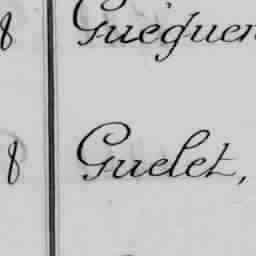 8 Guéguen
8 Guelet,